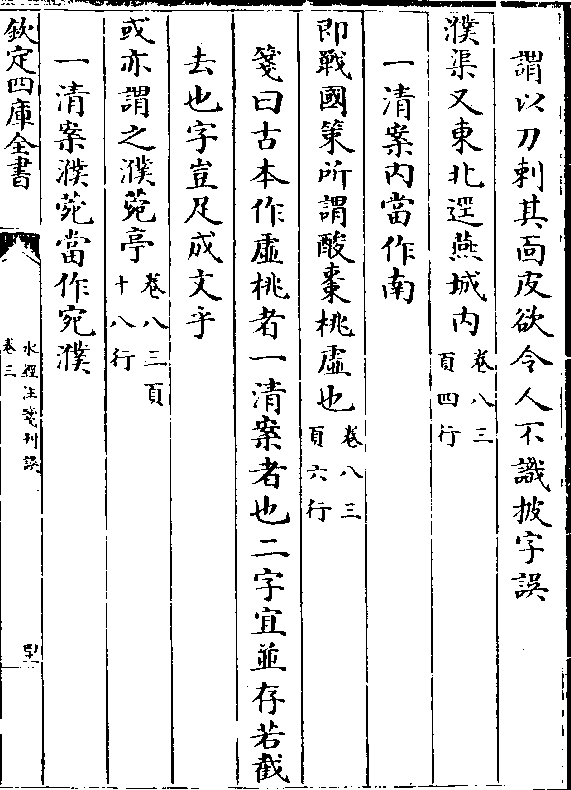 謂以刀剌其面皮欲令人不識披字誤
濮渠又東北逕燕城内卷八三頁四行
一清案内當作南
即戰國策所謂酸棗桃虛也卷八三頁六行
箋曰古本作虛桃者一清案者也二字宜並存若截
去也字豈足成文乎
或亦謂之濮菀亭卷八三頁十八行
一清案濮菀當作宛濮
欽定四庫全書
水經注箋刊誤
卷三